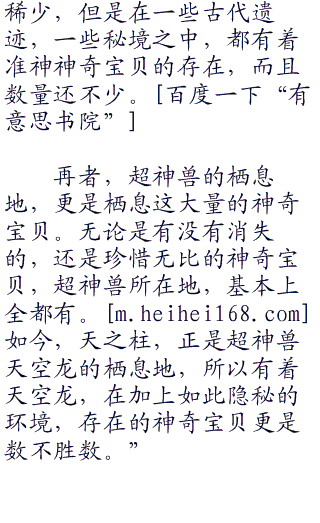 稀少，但是在一些古代遗
迹，一些秘境之中，都有着
准神神奇宝贝的存在，而且
数量还不少。[百度一下“有
意思书院”]
再者，超神兽的栖息
地，更是栖息这大量的神奇
宝贝。无论是有没有消失
的，还是珍惜无比的神奇宝
贝，超神兽所在地，基本上
全都有。[m.heihei168.com]
如今，天之柱，正是超神兽
天空龙的栖息地，所以有着
天空龙，在加上如此隐秘的
环境，存在的神奇宝贝更是
数不胜数。”